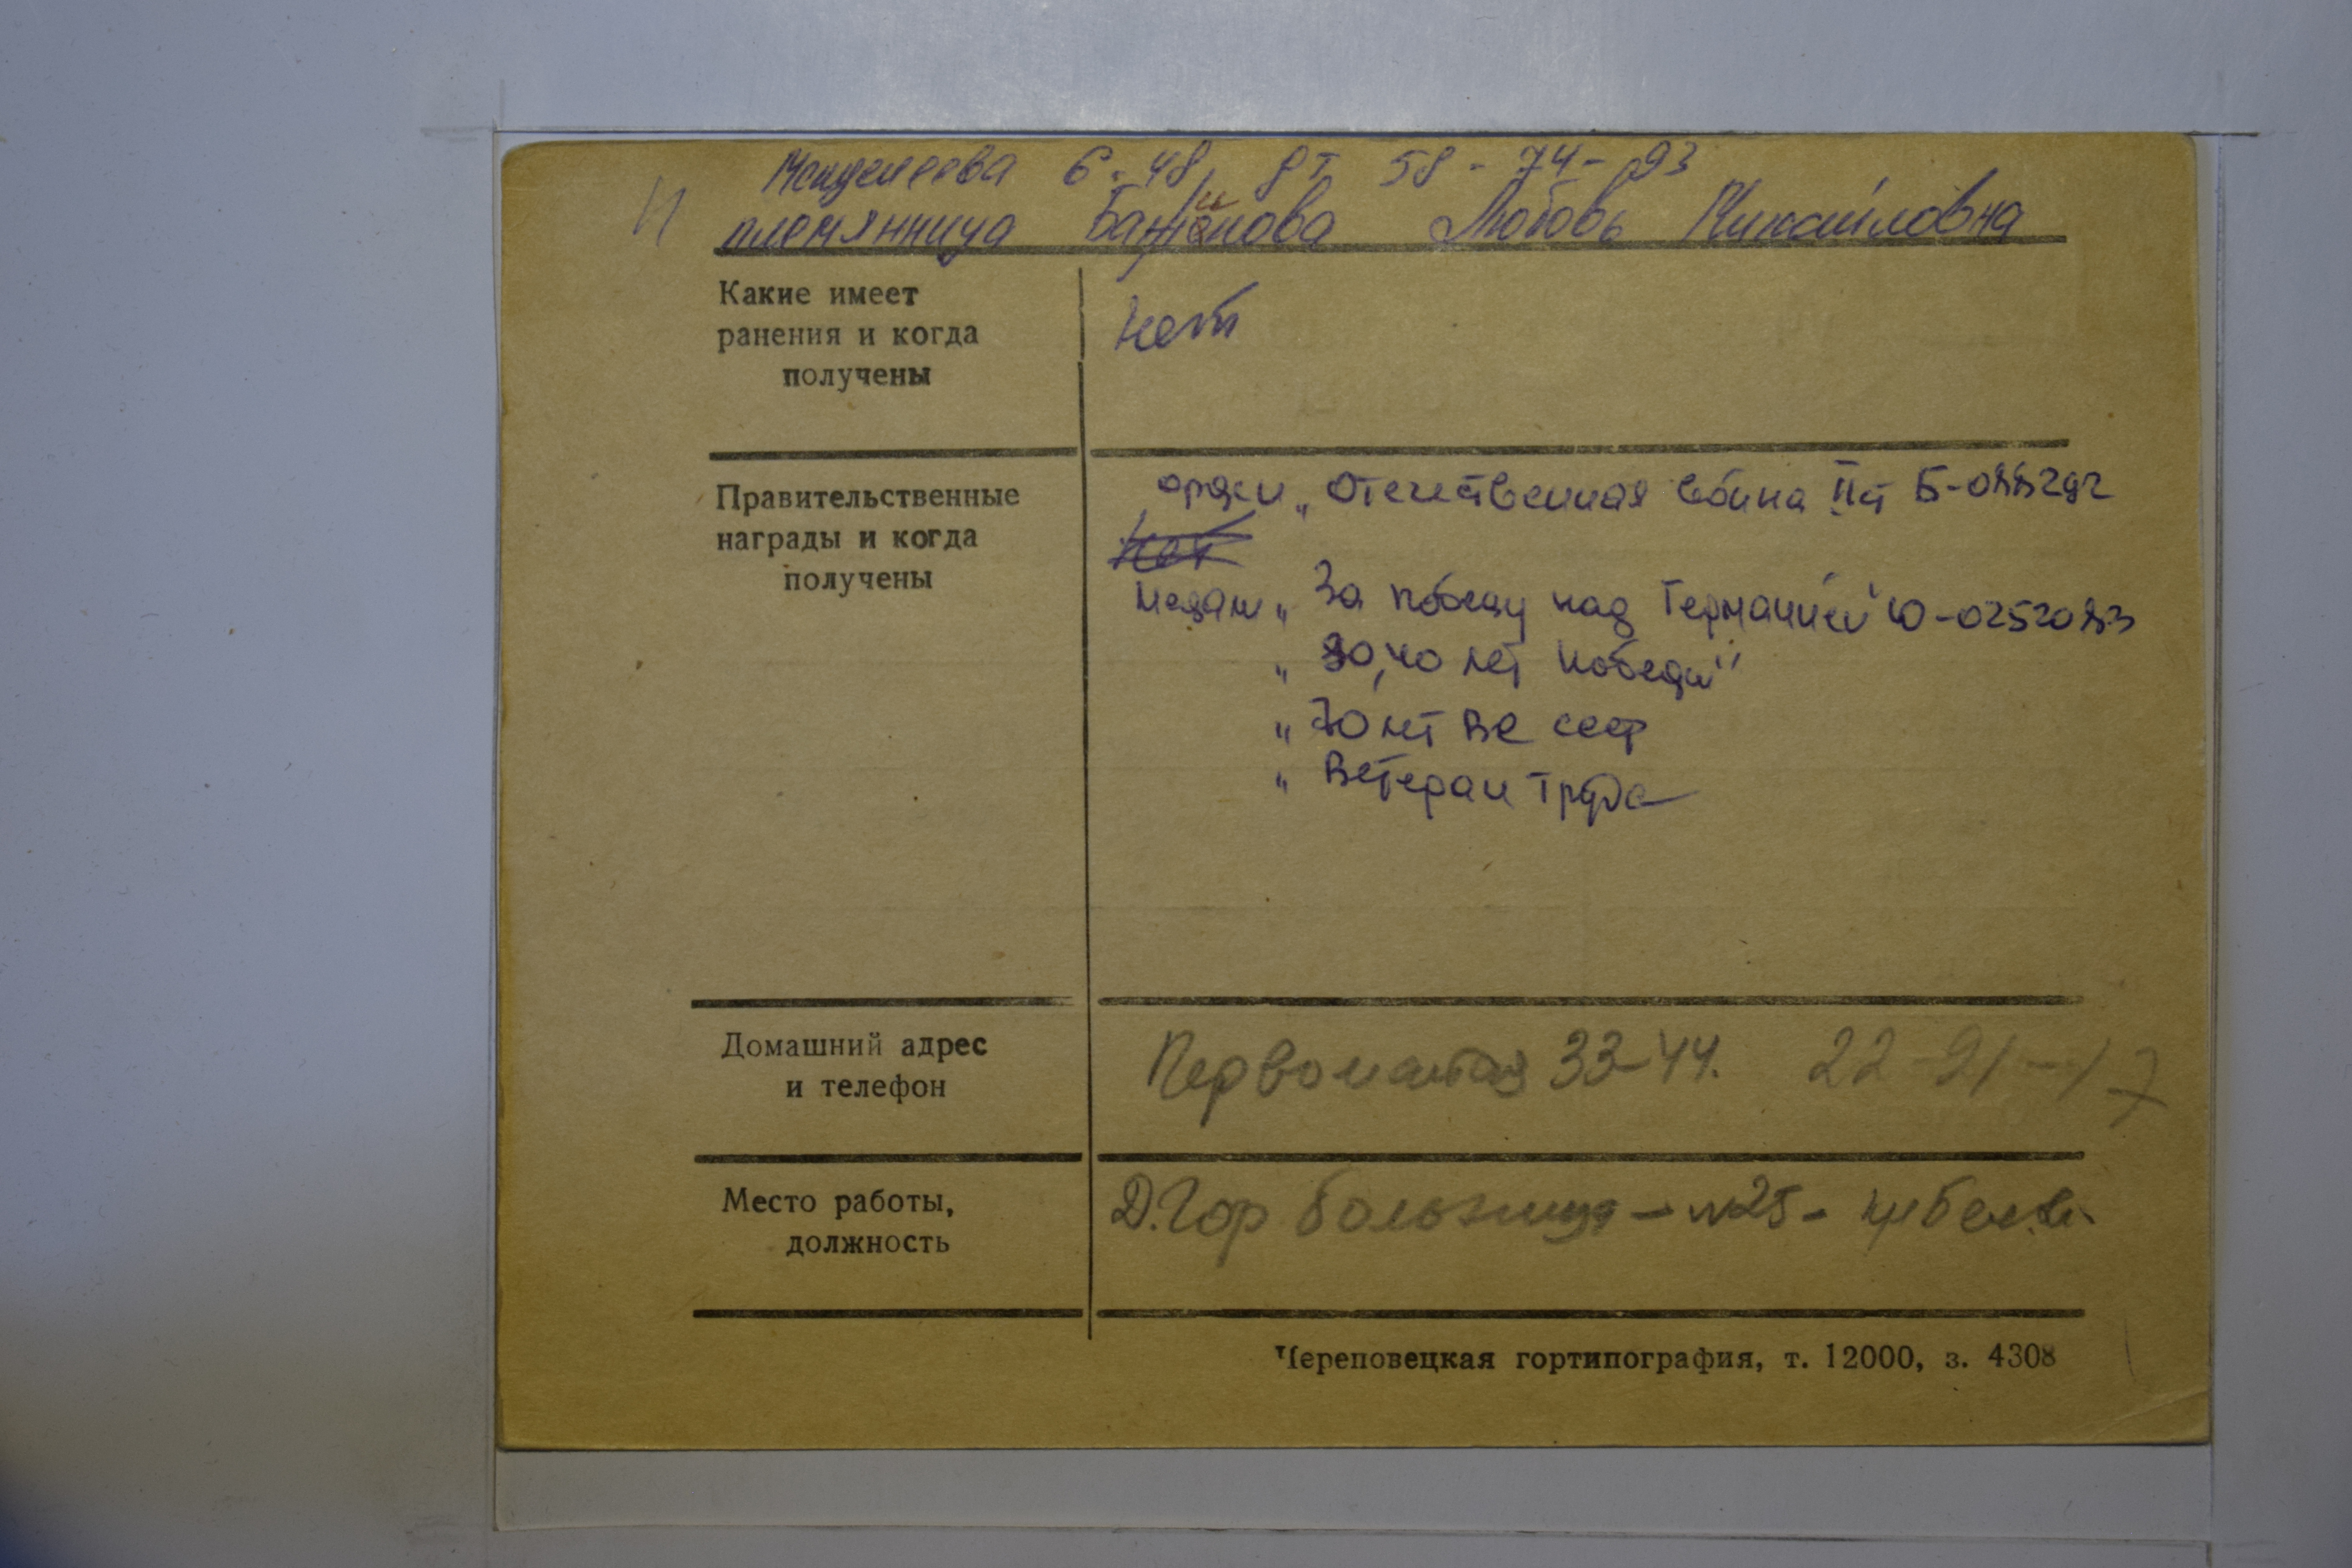 Менделеева 6-48, д.т 58-74-93
племянница Бажинова Любовь Михайловна
Какие имеет
ранения и когда
получены
нет
Правительственные
награды и когда
получены
орден „Отечественная война II ст Б-088292
нет
медали „За победу над Германией" Ю-0252083
„30,40 лет победы"
„70 лет ВС СССР
„Ветеран труда
Домашний адрес
и телефон
Первомайская 33-44. 22-91-17
Место работы,
должность
Д. Гор больница - №25 -
Череповецкая гортипография, т. 12000, з. 4308